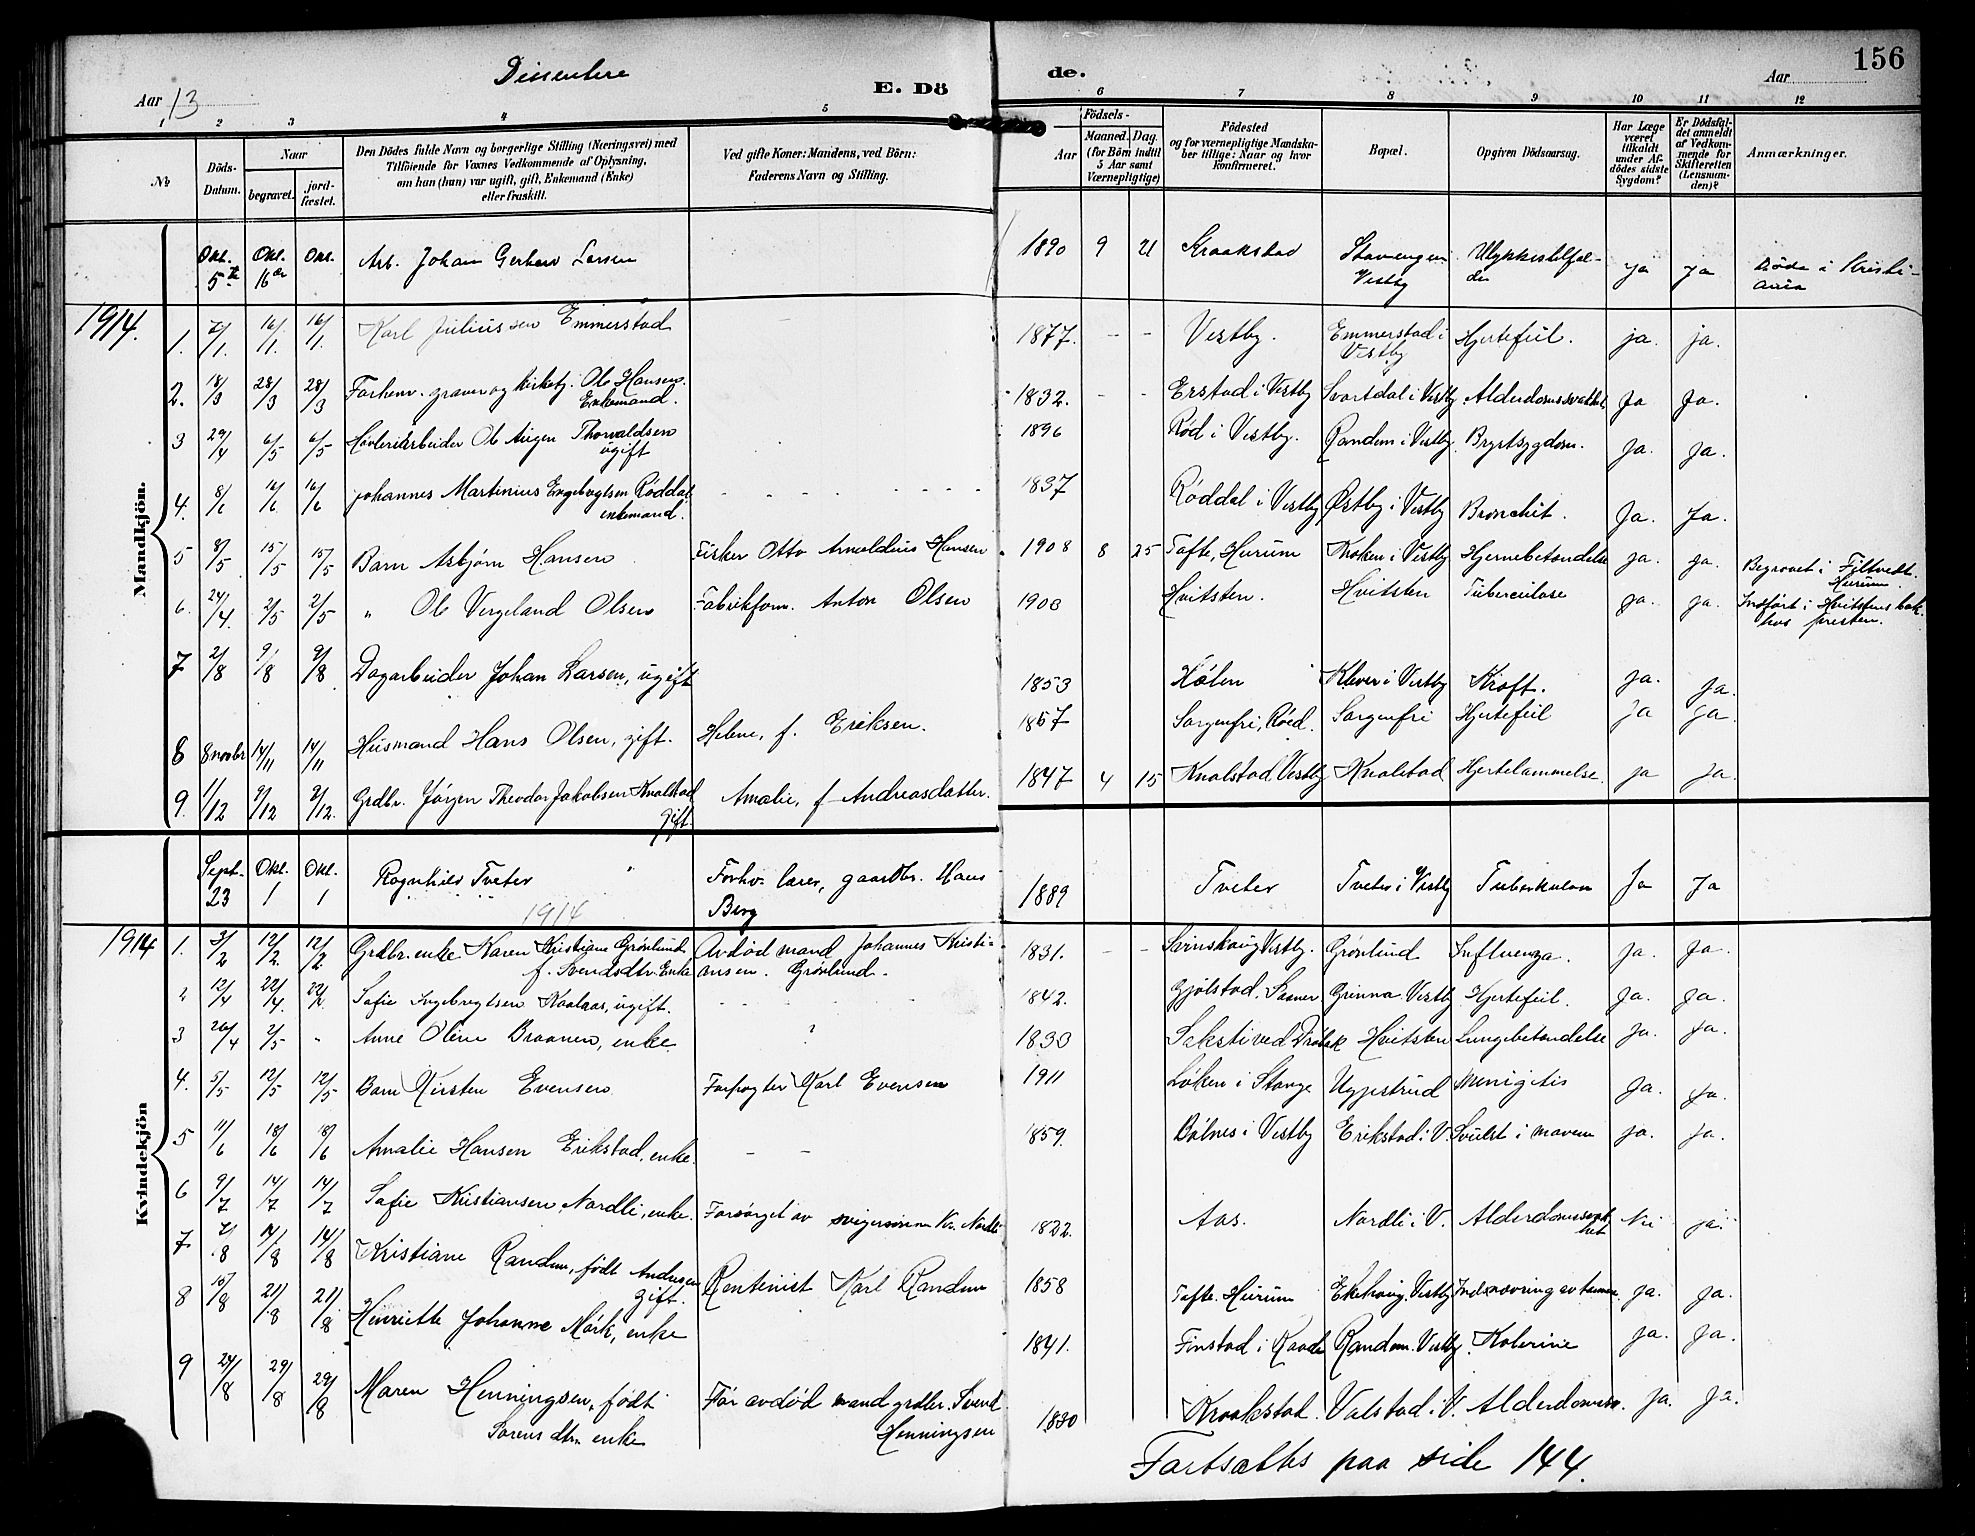 Dissentere
Aar 13
E. Dö
de.
Aar
156
1 2 3 4 5 6 7 8 9 10 11 12
No
Döds-Datum.
Naar
begravet.
jordfæstet.
Den Dödes fulde Navn og borgerlige Stilling (Næringsvei) med
Tilföiende for Voxnes Vedkommende af Oplysning,
om han (hun) var ugift, gift, Enkemand (Enke)
eller fraskilt.
Ved gifte Koner: Mandens, ved Börn:
Faderens Navn og Stilling.
Födsels-
Aar
Maaned. Dag.
(for Börn indtil
5 Aar samt
Værnepligtige)
Födested
og for værnepligtige Mandskaber tillige: Naar og hvor
konfirmeret.
Bopæl.
Opgiven Dödsaarsag.
Har Læge været tilkaldt under Afdödes sidste Sygdom?
Er Dödsfaldet anmeldt af Vedkommende for Skifteretten (Lensmanden)?
Anmærkninger.
Mandkjön.
Okt. 5te Okt. 16de Okt. Arb. Johan Gerhard Larsen 1890 9 21 Kraakstad Stavengen Vestby Ulykkestilfælde ja ja Døde i Kristiania
1914.
1. 7/1 16/1 16/1 Karl Juliussen Emmerstad 1877. - - Vestby. Emmerstad i Vestby Hjertefeil. ja. ja.
2. 18/3 28/3 28/3 Forhenv. graver og kirketj. Ole Hansen. Enkemand. 1832. - - Erstad i Vestby Svartdal i Vestby Alderdomssvakhet Ja Ja.
3 29/4 6/5 6/5 Høvleriarbeider Ole Augen Thorvaldsen ugift 1896 Rød i Vestby. Randem i Vestby Brystsygdom. Ja. Ja.
4. 8/6 16/6 16/6 Johannes Martinius Engebregtsen Røddal enkemand. 1837 Røddal i Vestby Østby i Vestby Bronchit. Ja. Ja.
5 8/5 15/5 15/5 Barn Asbjørn Hansen Fisker Otto Arnoldius Hansen 1908 8 25 Tofte, Hurum Kroken i Vestby Hjernebetændelse ja. ja. Begravet i Filtvedt. Hurum.
6. 24/4 2/5 2/5 " Ole Vergeland Olsen Fabrikform. Anton Olsen 1908 Hvitsten. Hvitsten Tuberculose ja. ja. Indført i Hvitstens bok hos presten.
7 2/8 9/8 9/8 Dagarbeider Johan Larsen, ugift 1853 Hølen Klever i Vestby Kræft. ja. Ja.
8 8 novbr 14/11 14/11 Husmand Hans Olsen, gift. Helene, f. Eriksen. 1857 Sorgenfri, Røed. Sorgenfri Hjertefeil Ja Ja.
9. 1/12 9/12 9/12. Grdbr. Jørgen Theodor Jakobsen Knalstad gift. Amalie, f. Andreasdatter. 1847 4 15 Knalstad, Vestby Knalstad Hjertelammelse. ja Ja.
Kvindekjön
Sept. 23 Okt. 1 Okt. 1 Ragnhild Tveter Forhv. lærer, gaardbr. Hans Berg 1889 Tveter Tveter i Vestby Tuberkulose Ja Ja
1914
1914
1. 3/2 12/2. 12/2. Grdbr. enke Karen Kristiane Grønlund f. Svendsdtr. Enke Avdød mand Johannes Kristiansen. Grønlund. 1831. - - Svinskaug Vestby. Grønlund Influenza. Ja. Ja.
2 12/4 22/4. 22/4 Sofie Ingebregtsen Kaalaas, ugift. 1842. Gjølstad. Saaner. Grinna. Vestby Hjertefeil. Ja. Ja.
3 26/4 2/5 " Anne Oline Braanen, enke ? 1830 Seksti ved Drøbak Hvitsten Lungebetændelse Ja. Ja.
4. 5/5 12/5 12/5 Barn Kirsten Evensen Forpagter Karl Evensen 1911 Løken i Stange Uggestrud Menigitis Ja. Ja.
5 11/6 18/6 18/6 Amalie Hansen Erikstad, enke. - - 1859. Bølnes i Vestby Erikstad i V. Svulst i maven ja. ja.
6 9/7 14/7 14/7 Sofie Kristiansen Nordli, enke. Forsørget av svigersønnen Kr. Nordli 1822. Aas. Nordli i V. Alderdomssvakhet Nei ja.
7. 7/8 14/8 14/8 Kristiane Randem, født Andersen gift. Rentenist Karl Randem 1858 Tofte. Hurum Ekehaug. Vestby Indsnævring av tarmen. ja. Ja.
8 15/8 21/8 21/8 Henriette Johanne Mørk, enke 1841. Finstad i Raade Randem. Vestby Kolerine ja. Ja.
9 24/8 29/8 29/8 Maren Henningsen, født Sørensdtr. enke Før avdød mand grdbr. Svend Henningsen 1830 Kraakstad. Valstad i V. Alderdomssv. Ja. Ja.
Fortsættes paa side 144.